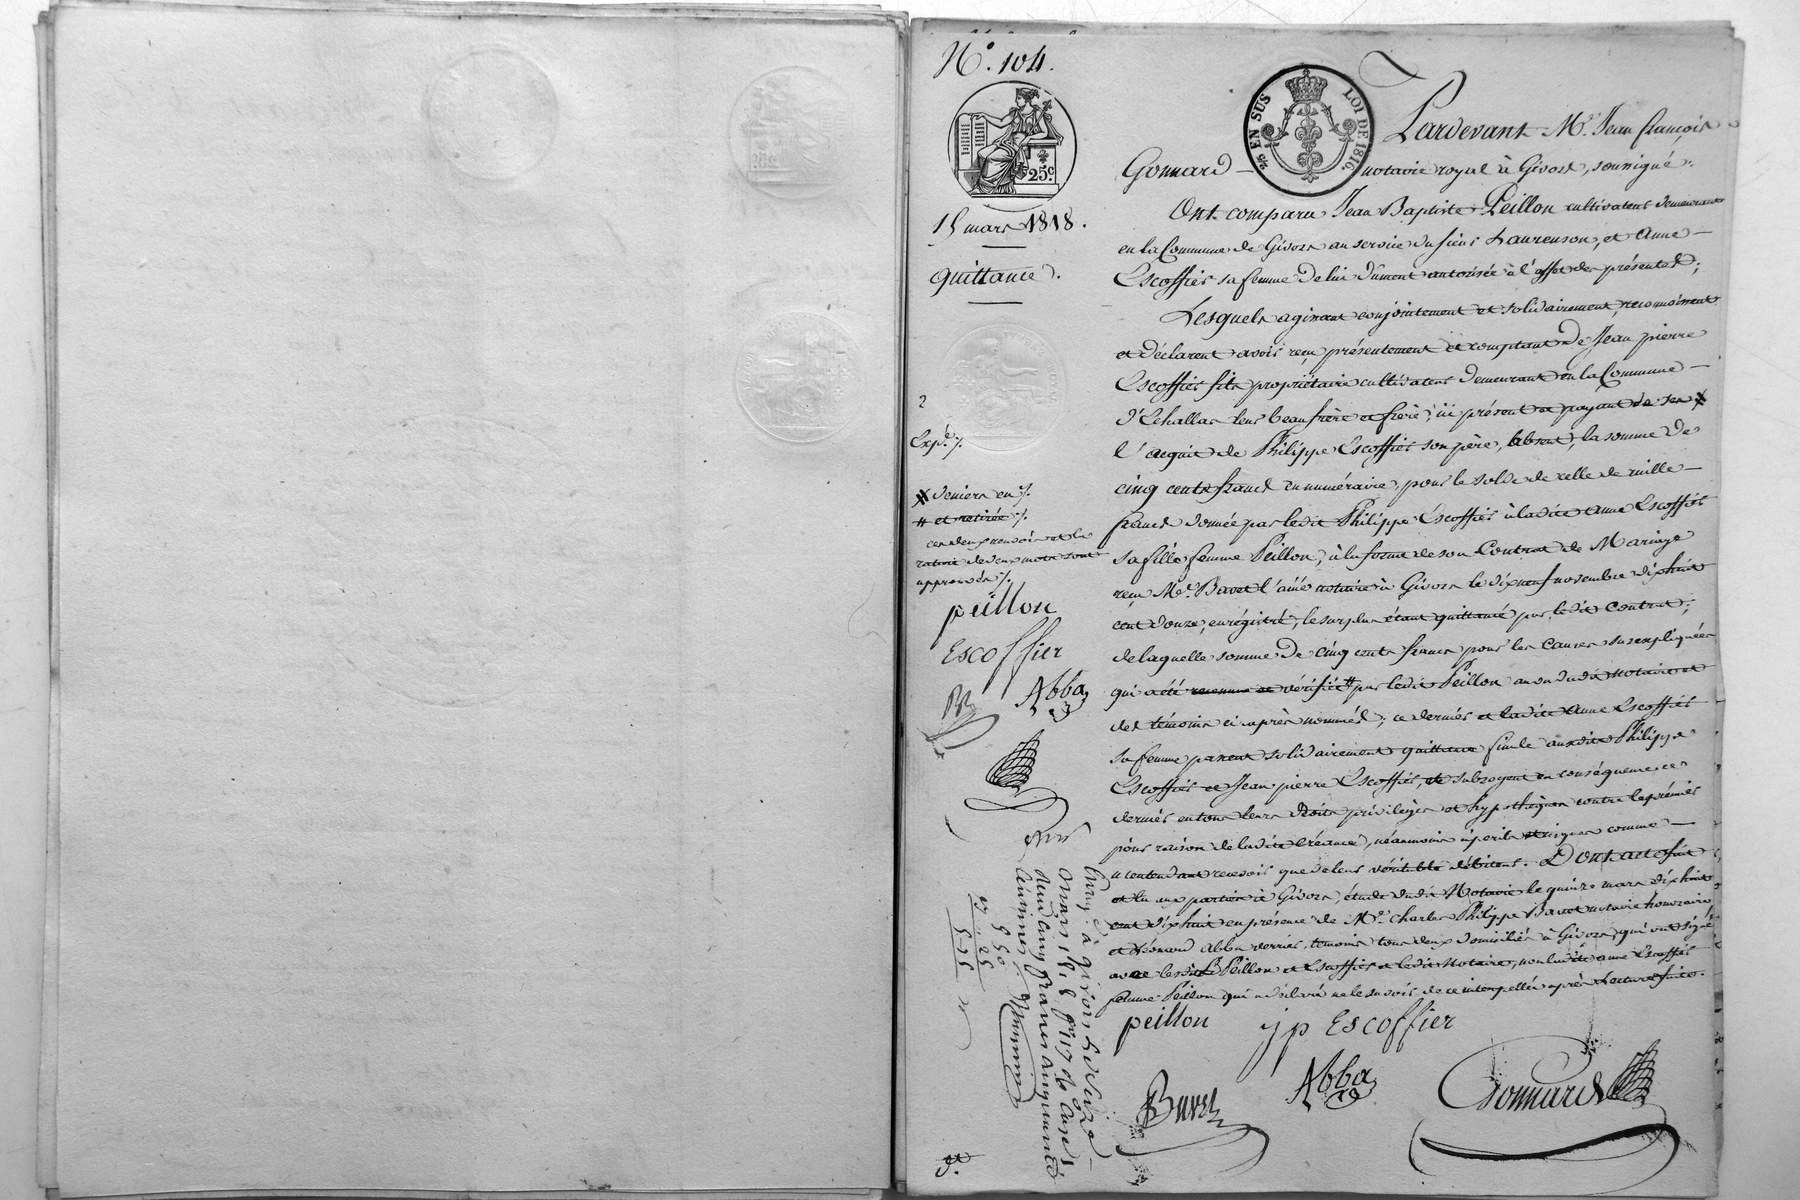 N.° 104.
25 EN SUS
LOI DE 1816
25 c.
15 mars 1818.
quittance.
2
Exp.e ./.
# deniers en ./.
# et retirée ./.
ces deux renvois et la
rature de deux mots sont
approuvés ./.
peillon
Escoffier
Abba
Pardevant M.e Jean françois
Gonnard notaire royal à Givors, soussigné.
Ont comparu Jean Baptiste Peillon cultivateur demeurant
en la Commune de Givors au service du sieur Laurenson, et Anne
Escoffier sa femme de lui dûment autorisée à l'effet des présentes;
Lesquels agissant conjointement et solidairement, reconnoissent
et déclarent avoir reçu présentement et comptant de Jean pierre
Escoffier fils propriétaire cultivateur demeurant en la Commune
d'Echallas leur beau frère et frère, ici présent et payant de ses #
l'acquit de Philippe Escoffier son père, absent, la somme de
cinq cents francs en numéraire, pour le solde de celle de mille
francs donnée par ledit Philippe Escoffier à ladite Anne Escoffier
sa fille femme Peillon, à la forme de son Contrat de Mariage
reçu M.e Bavet l'aîné notaire à Givors le dix neuf novembre dix huit
cent douze, enregistré, le surplus étant quittancé par ledit contrat;
de laquelle somme de cinq cents francs pour les causes susexpliquées
qui a été reconnue et vérifiée # par ledit Peillon au vu dudit notaire et
des témoins ci après nommés; ce dernier et ladite Anne Escoffier
sa femme passent solidairement quittance finale auxdits Philippe
Escoffier et Jean pierre Escoffier, et subrogent en conséquence ce
dernier en tous leurs droits privilèges et hypothèques contre le premier
pour raison de ladite créance, néanmoins à périls et risques comme
n'entendant recevoir que de leur véritable débiteur. Dont acte fait
et lu aux parties à Givors, étude dudit Notaire le quinze mars dix huit
cent dix huit en présence de M.e Charles Philippe Bavet notaire honoraire
et Léonard Abba verrier, témoins tous deux domiciliés à Givors, qui ont signé
avec lesdits Peillon et Escoffier et ledit Notaire, non ladite anne Escoffier
femme Peillon qui a déclaré ne le savoir de ce interpellée après Lecture faite.
peillon jp Escoffier
Bavet
Abba
Gonnard
Enreg.é à givors le seize
mars 1818 f.o 117 v.o case 1
reçu cinq francs cinquante
centimes
5 50